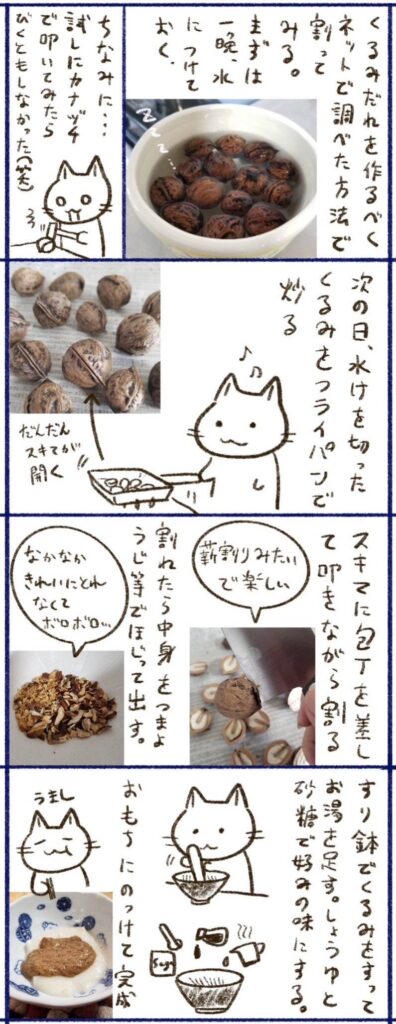 くるみだれを作るべく
ネットで調べた方法で
割って
みる。
まずは
一晩、水
につけて
おく。
zzz...
ちなみに…
試しにカナヅチ
で叩いてみたら
びくともしなかった(笑)
次の日、水けを切った
くるみをフライパンで
炒る
だんだん
スキマが
開く
スキマに包丁を差し
て叩きながら割る
薪割りみたい
で楽しい
割れたら中身をつまよ
うじ等でほじって出す。
なかなか
きれいにとれ
なくて
ボロボロ…
すり鉢でくるみをすって
お湯を足す。しょうゆと
砂糖で好みの味にする。
Suga
おもちにのっけて完成
うまし